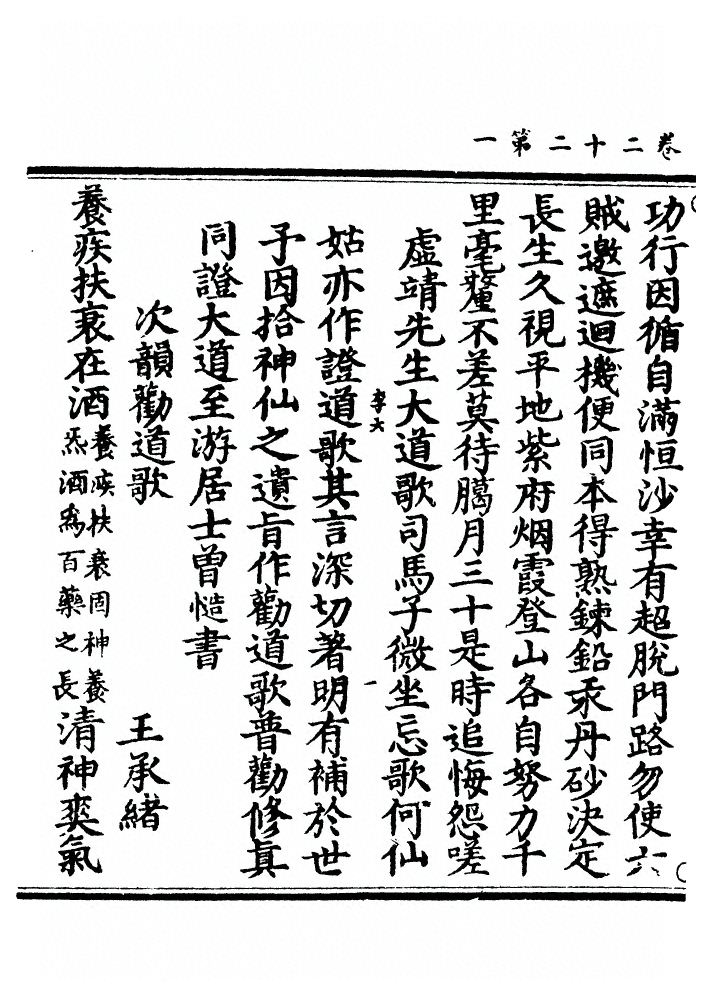 卷二十二第一
功行因循自滿恒沙幸有超脫門路勿使六
賊邀遮迴機便同本得熟鍊鉛汞丹砂決定
長生久視平地紫府烟霞登山各自努力千
里毫釐不差莫待臈月三十是時追悔怨嗟
虛靖先生大道歌司馬子微坐忘歌何仙
李大
姑亦作證道歌其言深切著明有補於世
予因拾神仙之遺旨作勸道歌普勸修真
同證大道至游居士曾慥書
次韻勸道歌
王承緒
養疾扶衰在酒養疾扶衰固神養
炁酒為百藥之長清神爽氣